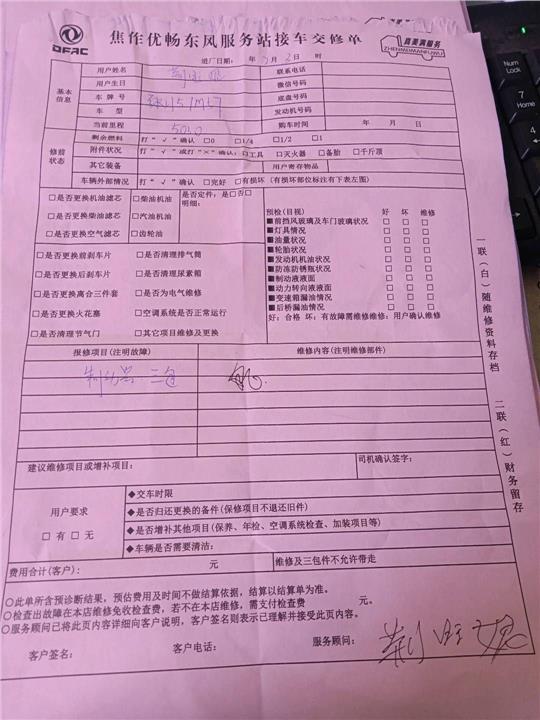 DFAC
焦作优畅东风服务站接车交修单
真美满服务
ZHENMEIMANFUWU
进厂日期： 年 3 月 2 日 时
基本信息
用户姓名 联系电话
用户生日 微信号码
车 牌 号 底盘号码
车 型 发动机号码
当前里程 5020 购车时间 年 月 日
修前状态
剩余燃料 打“√”确认 □0 □1/4 □1/2 □1
附件状况 打“√”或打“×”确认：□工具 □灭火器 □备胎 □千斤顶
其它装备 用户寄存物品
车辆外部情况 打“√”确认 □完好 □有损坏（有损坏部位标注有下表左图）
□是否更换机油滤芯 □柴油机油 是否定件，是□否□
□是否更换柴油滤芯 □汽油机油 明细：
□是否更换空气滤芯 □齿轮油
□是否更换前刹车片 □是否清理排气筒
□是否更换后刹车片 □是否清理尿素箱
□是否更换离合三件套 □是否为电气维修
□是否更换火花塞 □空调系统是否正常运行
□是否清理节气门 □其它项目维修及更换
预检(目视) 好 坏 维修
■前挡风玻璃及车门玻璃状况 □ □ □
■灯具情况 □ □ □
■油量状况 □ □ □
■轮胎状况 □ □ □
■发动机机油状况 □ □ □
■防冻防锈瓶状况 □ □ □
■制动液液面 □ □ □
■动力转向液液面 □ □ □
■变速箱漏油情况 □ □ □
■后桥漏油情况 □ □ □
好：合格 坏：有故障需维修维修：用户确认维修
报修项目(注明故障) 维修内容(注明维修部件)
三包
建议维修项目或增补项目： 司机确认签字：
用户要求
□ 有 □ 无
◆交车时限
◆是否归还更换的备件(保修项目不退还旧件)
◆是否增补其他项目(保养、年检、空调系统检查、加装项目等)
◆车辆是否需要清洁：
费用合计(客户)： 元 维修及三包件不允许带走
○此单所含预诊断结果，预估费用及时间不做结算依据，结算以结算单为准。
○检查出故障在本店维修免收检查费，若不在本店维修，需支付检查费 元。
○服务顾问已将此页内容详细向客户说明，客户签名则表示已理解并接受此页内容。
客户签名： 客户电话： 服务顾问：
一联（白）随维修资料存档 二联（红）财务留存
Num Lock
7
Home